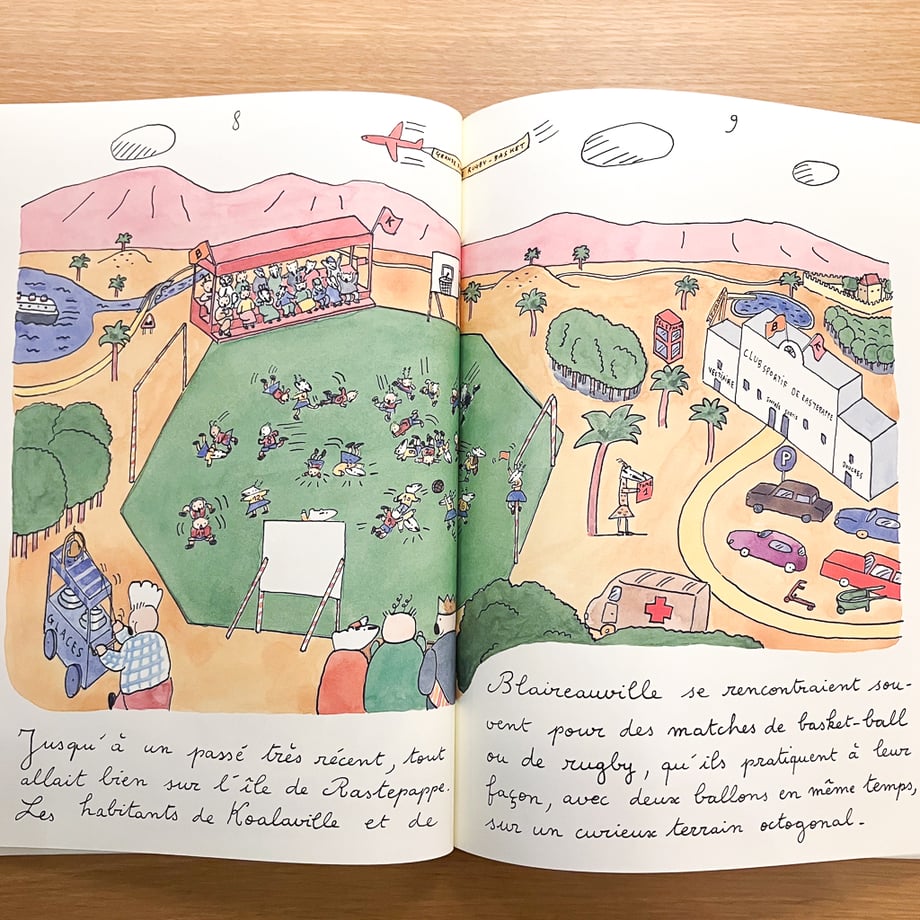 8
9
GRANDE
RUGBY-BASKET
K
B
B
K
CLUB SPORTIF DE RASTEPAPPE
VESTIAIRE
DOUCHES
P
GLACES
Jusqu'à un passé très récent, tout
allait bien sur l'île de Rastepappe.
Les habitants de Koalaville et de
Blaireauville se rencontraient sou-
vent pour des matches de basket-ball
ou de rugby, qu'ils pratiquent à leur
façon, avec deux ballons en même temps,
sur un curieux terrain octogonal.